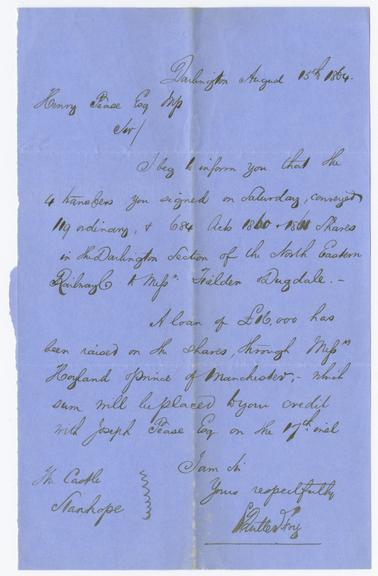 Darlington August 15th 1864.
Henry Pease Esq MP
Sir/
I beg to inform you that the
4 transfers you signed on Saturday, conveyed
119 ordinary, & 684 Acts 1860 & 1861 Shares
in the Darlington Section of the North Eastern
Railway Co to Messrs. Fielden Dugdale. -
A loan of £16,000 has
been raised on the shares, through Messrs
Hoyland & Prince of Manchester, - which
sum will be placed to your credit
with Joseph Pease Esq on the 17th inst
I am Sir
The Castle
Yours respectfully
Stanhope